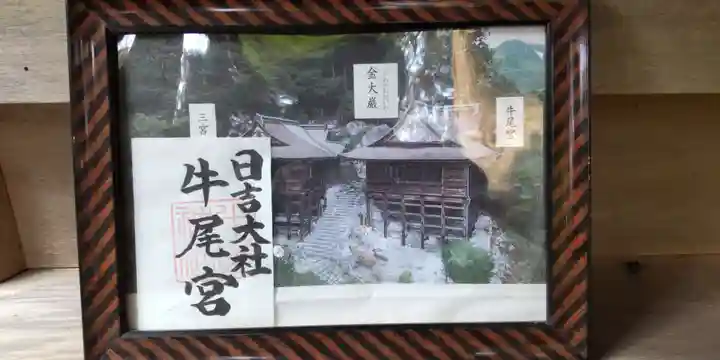 金大巌
三宮
牛尾宮
日吉大社
牛尾宮